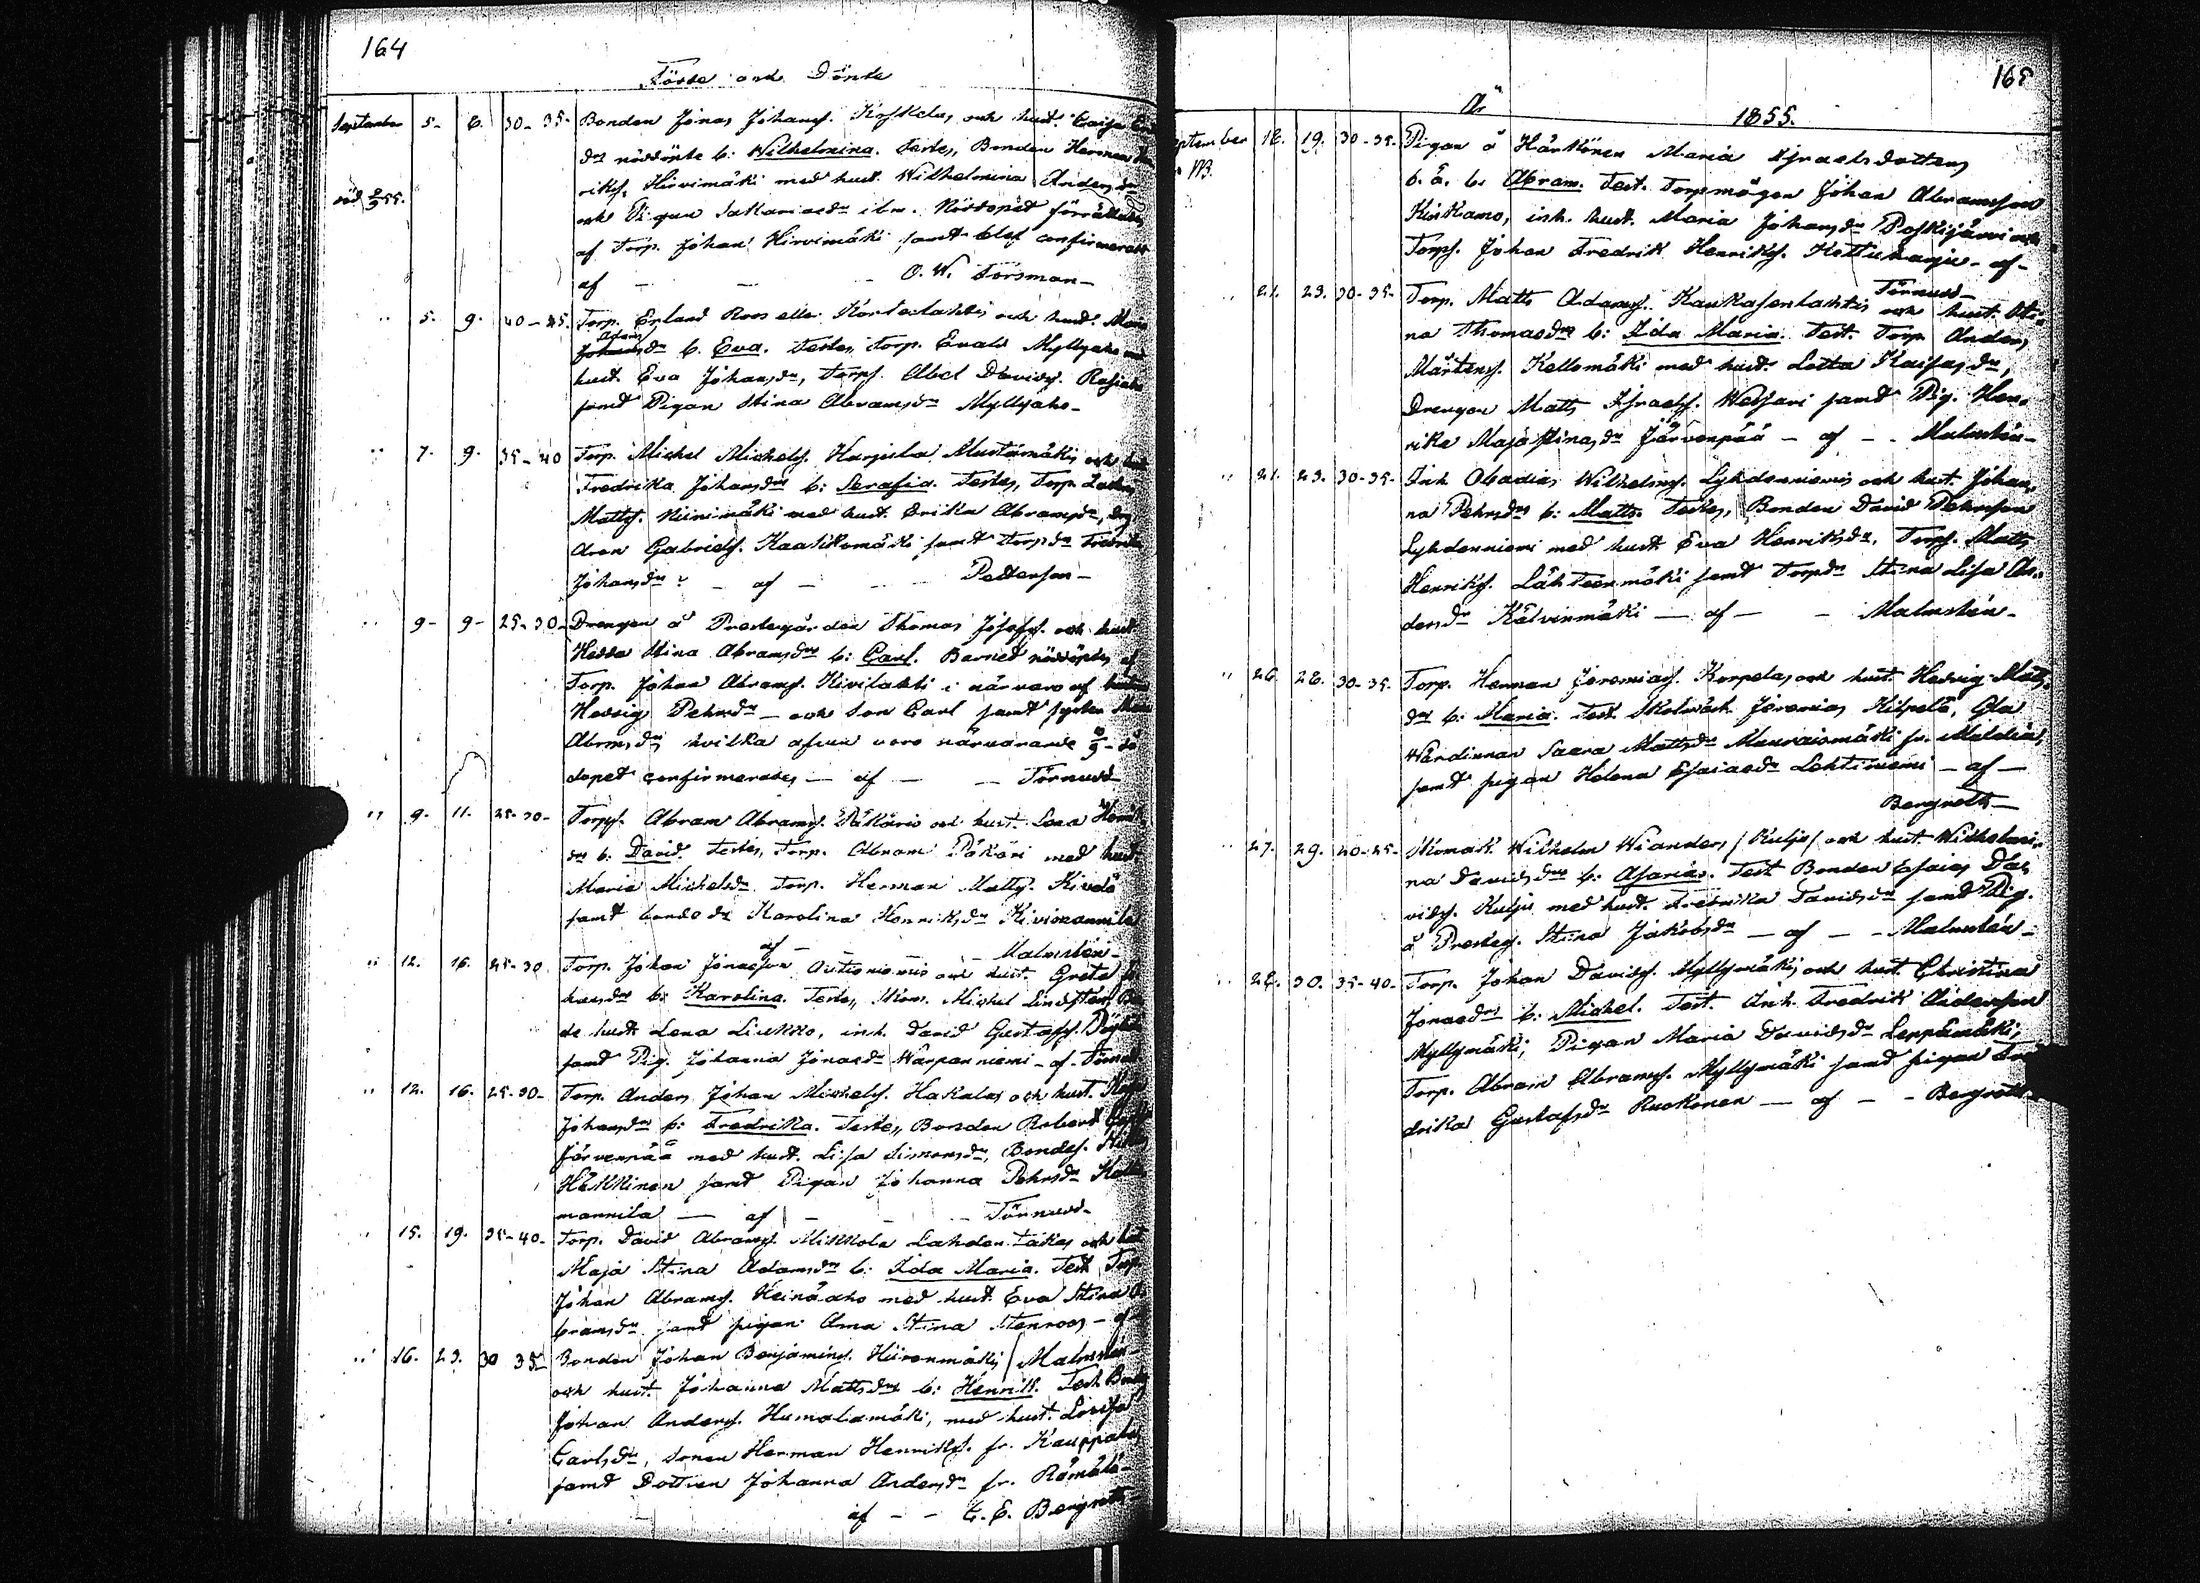 164
Födde och Döpte
September 5. 6. 30-35. Bonden Jonas Johans. och hust. Caisa
drs nöddöpte b: Wilhelmina. Testes, Bonden Herman
riks. Hirvimäki med hust. Wilhelmina Andersdr
död 8/9 55. och Pigan Sakariasdr ibm. Nöddopet förrättades
af Torp. Johan Hirvimäki samt blef confirmerat
af — — — O. W. Forsman —
" 5. 9. 40-45. Torp. Erland Roos eller Kortelahtis och hust. Maria
Adams
Johansdr b. Eva. Testes, Torp. Evald Myllyaho med
hust. Eva Johansdr, Torps. Abel Davids. Rajiaho
samt Pigan Stina Abramsdr Myllyaho —
" 7. 9. 35-40 Torp. Michel Michels. Harjula Mustamäkis och hust
Fredrika Johansdrs b: Serafia. Testes, Torp.
Matts. Niinimäki med hust. Erika Abramsdr, drg
Aron Gabriels. Kaatikomäki samt Torpdr Fredrika
Johansdr — af — — Petterson —
" 9- 9- 25-30- Drengen å Prestegården Thomas Josefs. och hust
Hedda Stina Abramsdrs b: Carl. Barnet nöddöptes af
Torp. Johan Abrams. Kivilahti i närvaro af hustru
Hedvig Pehrsdr — och Son Carl samt syster
Abrmsdr hvilka afven voro närvarande då
dopet confirmerades — af — — Törnudd
" 9. 11. 25-30- Torps. Abram Abrams. Päkäris och hust. Lena Henrik
drs b: David. Testes, Torp. Abram Päkäri med hust.
Maria Michelsdr Torp. Herman Matts. Kivelä
samt bondedr Karolina Henriksdr Kivimannila
af — — Malmstén —
" 12. 16. 25-30 Torp. Johan Jonasson Autioniemis och hust. Greta Jo
hansdrs b: Karolina. Testes, Skom. Michel Lindsten,
de hust. Lena Liukko, inh. David Gustafs.
samt Pig. Johanna Jonasdr Warpanniemi — af — Törnudd
" 12. 16. 25-30- Torp. Anders Johan Michels. Hakalas och hust.
Johansdrs b: Fredrika. Testes, Bonden Robert
Järvenpää med hust. Lisa Simonsdr, Bondes.
Häkkinen samt Pigan Johanna Pehrsdr
mannila — af — — Törnudd —
" 15. 19. 35-40- Torp. David Abrams. Mikkola Lahden takas och hust
Maja Stina Adamsdrs b: Ida Maria. Test. Torp.
Johan Abrams. Heinäaho med hust. Eva Stina A
bramsdr samt pigan Anna Stina Stenroos — af
" 16. 23. 30 35- Bonden Johan Benjamins. Hiironmäkis / Malmstén —
och hust. Johanna Mattsdrs b: Henrik. Test. Bond
Johan Anders. Humalamäki, med hust. Lovisa
Carlsdr, sonen Herman Henriks. fr. Kauppala
samt Dottren Johanna Andersdr fr. Rämälä —
af — — C. E. Bergroth
165
Ao 1855.
September 18. 19. 30-35. Pigan å Härkönen Maria Israelsdotters
NB. o. ä. b: Abram. Test. Torpmågen Johan Abramsson
Kinkamo, inh. hust. Maria Johansdr Poskijärvi och
Torps. Johan Fredrik Henriks. Hettuharju — af —
Törnudd —
" 21. 23. 30-35- Torp. Matts Adams. Kaukasenlahtis och hust. Sti
na Thomasdrs b: Ida Maria. Test. Torp. Anders
Mårtens. Kellomäki med hust. Lotta Kaisasdr,
Drengen Matts Israels. Wessari samt Pig. Hen
rika Majastinasdr Järvenpää — af — — Malmstén —
" 21. 23. 30-35- Inh. Obadias Wilhelms. Lyhdenniemis och hust. Johan
na Pehrsdrs b: Matts. Testes, Bonden David Pehrsson
Lyhdenniemi med hust. Eva Henriksdr, Torps. Matts
Henriks. Lähteenmäki samt Torpdr Stina Lisa An
dersdr Kätvinmäki — af — — Malmstén —
" 26. 28. 30-35. Torp. Herman Jeremias. Korpelas och hust. Hedvig Matts
drs b: Maria. Test. Skolmäst. Jeremias Kilpelä,
Wärdinnan Saara Mattsdr Mauraismäki fr.
samt pigan Helena Esaiasdr Lehtiniemi — af —
Bergroth —
" 27. 29. 20-25- Skomak. Wilhelm Wianders / Kulju / och hust. Wilhelmi
na Davidsdrs b: Asarias. Test. Bonden Esaias Da
vids. Kulju med hust. Fredrika Davidsdr samt Pig.
å Presteg. Stina Jakobsdr — af — — Malmstén —
" 28. 30. 35-40- Torp. Johan Davids. Myllymäkis och hust. Christina
Jonasdrs b: Michel. Test. Inh. Fredrik Anderson
Myllymäki, Pigan Maria Davidsdr Leppämäki,
Torp. Abram Abrams. Myllymäki samt pigan Fre
drika Gustafsdr Ruokonen — af — — Bergroth